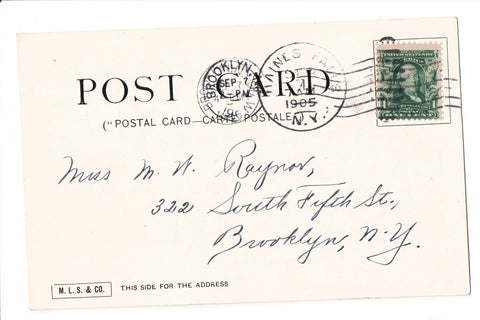 POST CARD
("POSTAL CARD—CARTE POSTALE")
BROOKLYN
SEP 7
PM
HAINES FALLS
1905
N.Y.
Miss M. W. Raynor,
322 South Fifth St.,
Brooklyn, N.Y.
M. L. S. & CO.
THIS SIDE FOR THE ADDRESS